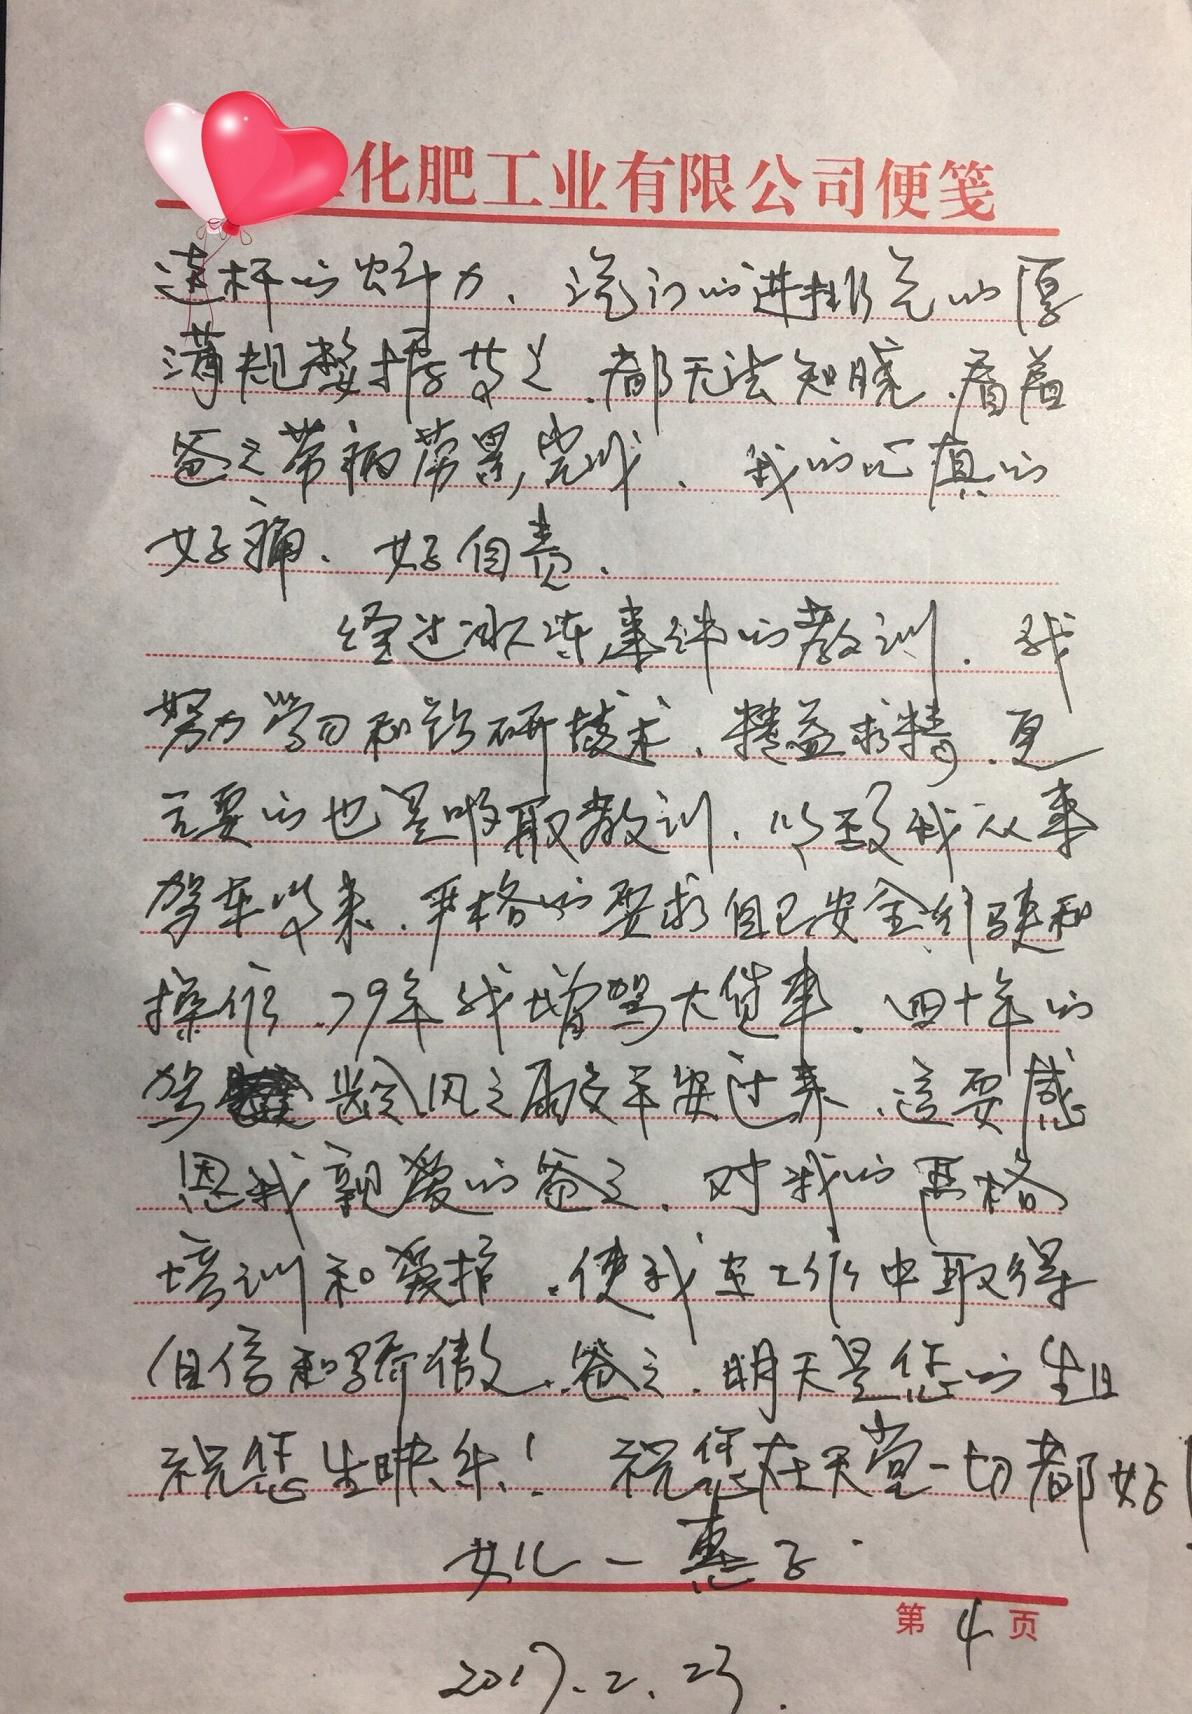 化肥工业有限公司便笺
连杆的公斤力、汽门的进排气的厚
薄规整据等等、都无法知晓、看着
爸爸带病劳累完成、我的心真的
好痛、好自责、
经过冰冻事件的教训、我
努力学习和钻研技术、精益求精、更
主要的也是吸取教训、以至我从事
驾车以来、严格的要求自己安全行驶和
操作、79年我增驾大货车、四十年的
驾龄风风雨雨平安过来、这要感
恩我亲爱的爸爸、对我的严格
培训和爱护、使我在工作中取得
自信和骄傲、爸爸、明天是您的生日
祝您生日快乐！祝您在天堂一切都好！
女儿一惠子
第4页
2017.2.23.